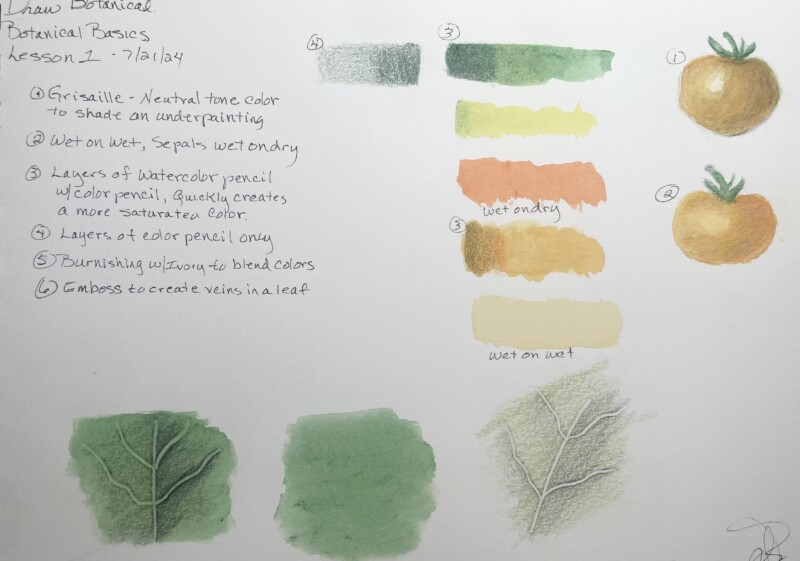 Draw Botanical
Botanical Basics
Lesson 1 - 7/21/24
① Grisaille - Neutral tone color
to shade an underpainting
② Wet on Wet, Sepals wet on dry
③ Layers of Watercolor pencil
w/color pencil, Quickly creates
a more saturated color.
④ Layers of color pencil only
⑤ Burnishing w/Ivory to blend colors
⑥ Emboss to create veins in a leaf
④
③
wet on dry
③
wet on wet
①
②